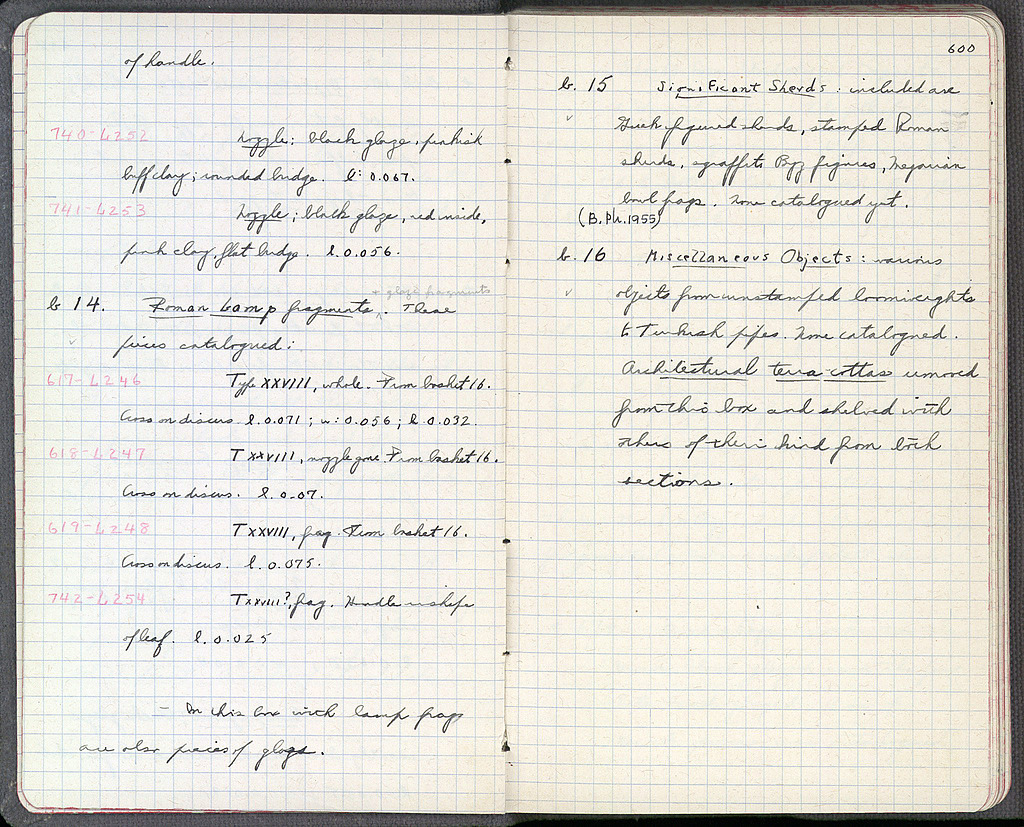 of handle.
740-L252 Nozzle; black glaze, pinkish
buff clay; rounded bridge. l: 0.067.
741-L253 Nozzle; black glaze, red inside,
pink clay, flat bridge. l. 0.056.
+ glaze fragments
b 14. Roman Lamp fragments. These
pieces catalogued:
617-L246 Type XXVIII, whole. From basket 16.
Cross on discus. l. 0.071; w: 0.056; h 0.032.
618-L247 T XXVIII, nozzle gone. From basket 16.
Cross on discus. l. 0.07.
619-L248 T XXVIII, frag. From basket 16.
Cross on discus. l. 0.075.
742-L254 T XXVIII?, frag. Handle in shape
of leaf. l. 0.025
– In this box with lamp frags
are also pieces of glass.
600
b. 15 Significant Sherds: included are
Greek figured sherds, stamped Roman
sherds, sgraffito Byz figures, Megarian
bowl frags. None catalogued yet.
(B.Ph.1955)
b. 16 Miscellaneous Objects: various
objects from unstamped loomweights
to Turkish pipes. None catalogued.
Architectural terra cottas removed
from this box and shelved with
others of their kind from both
sections.